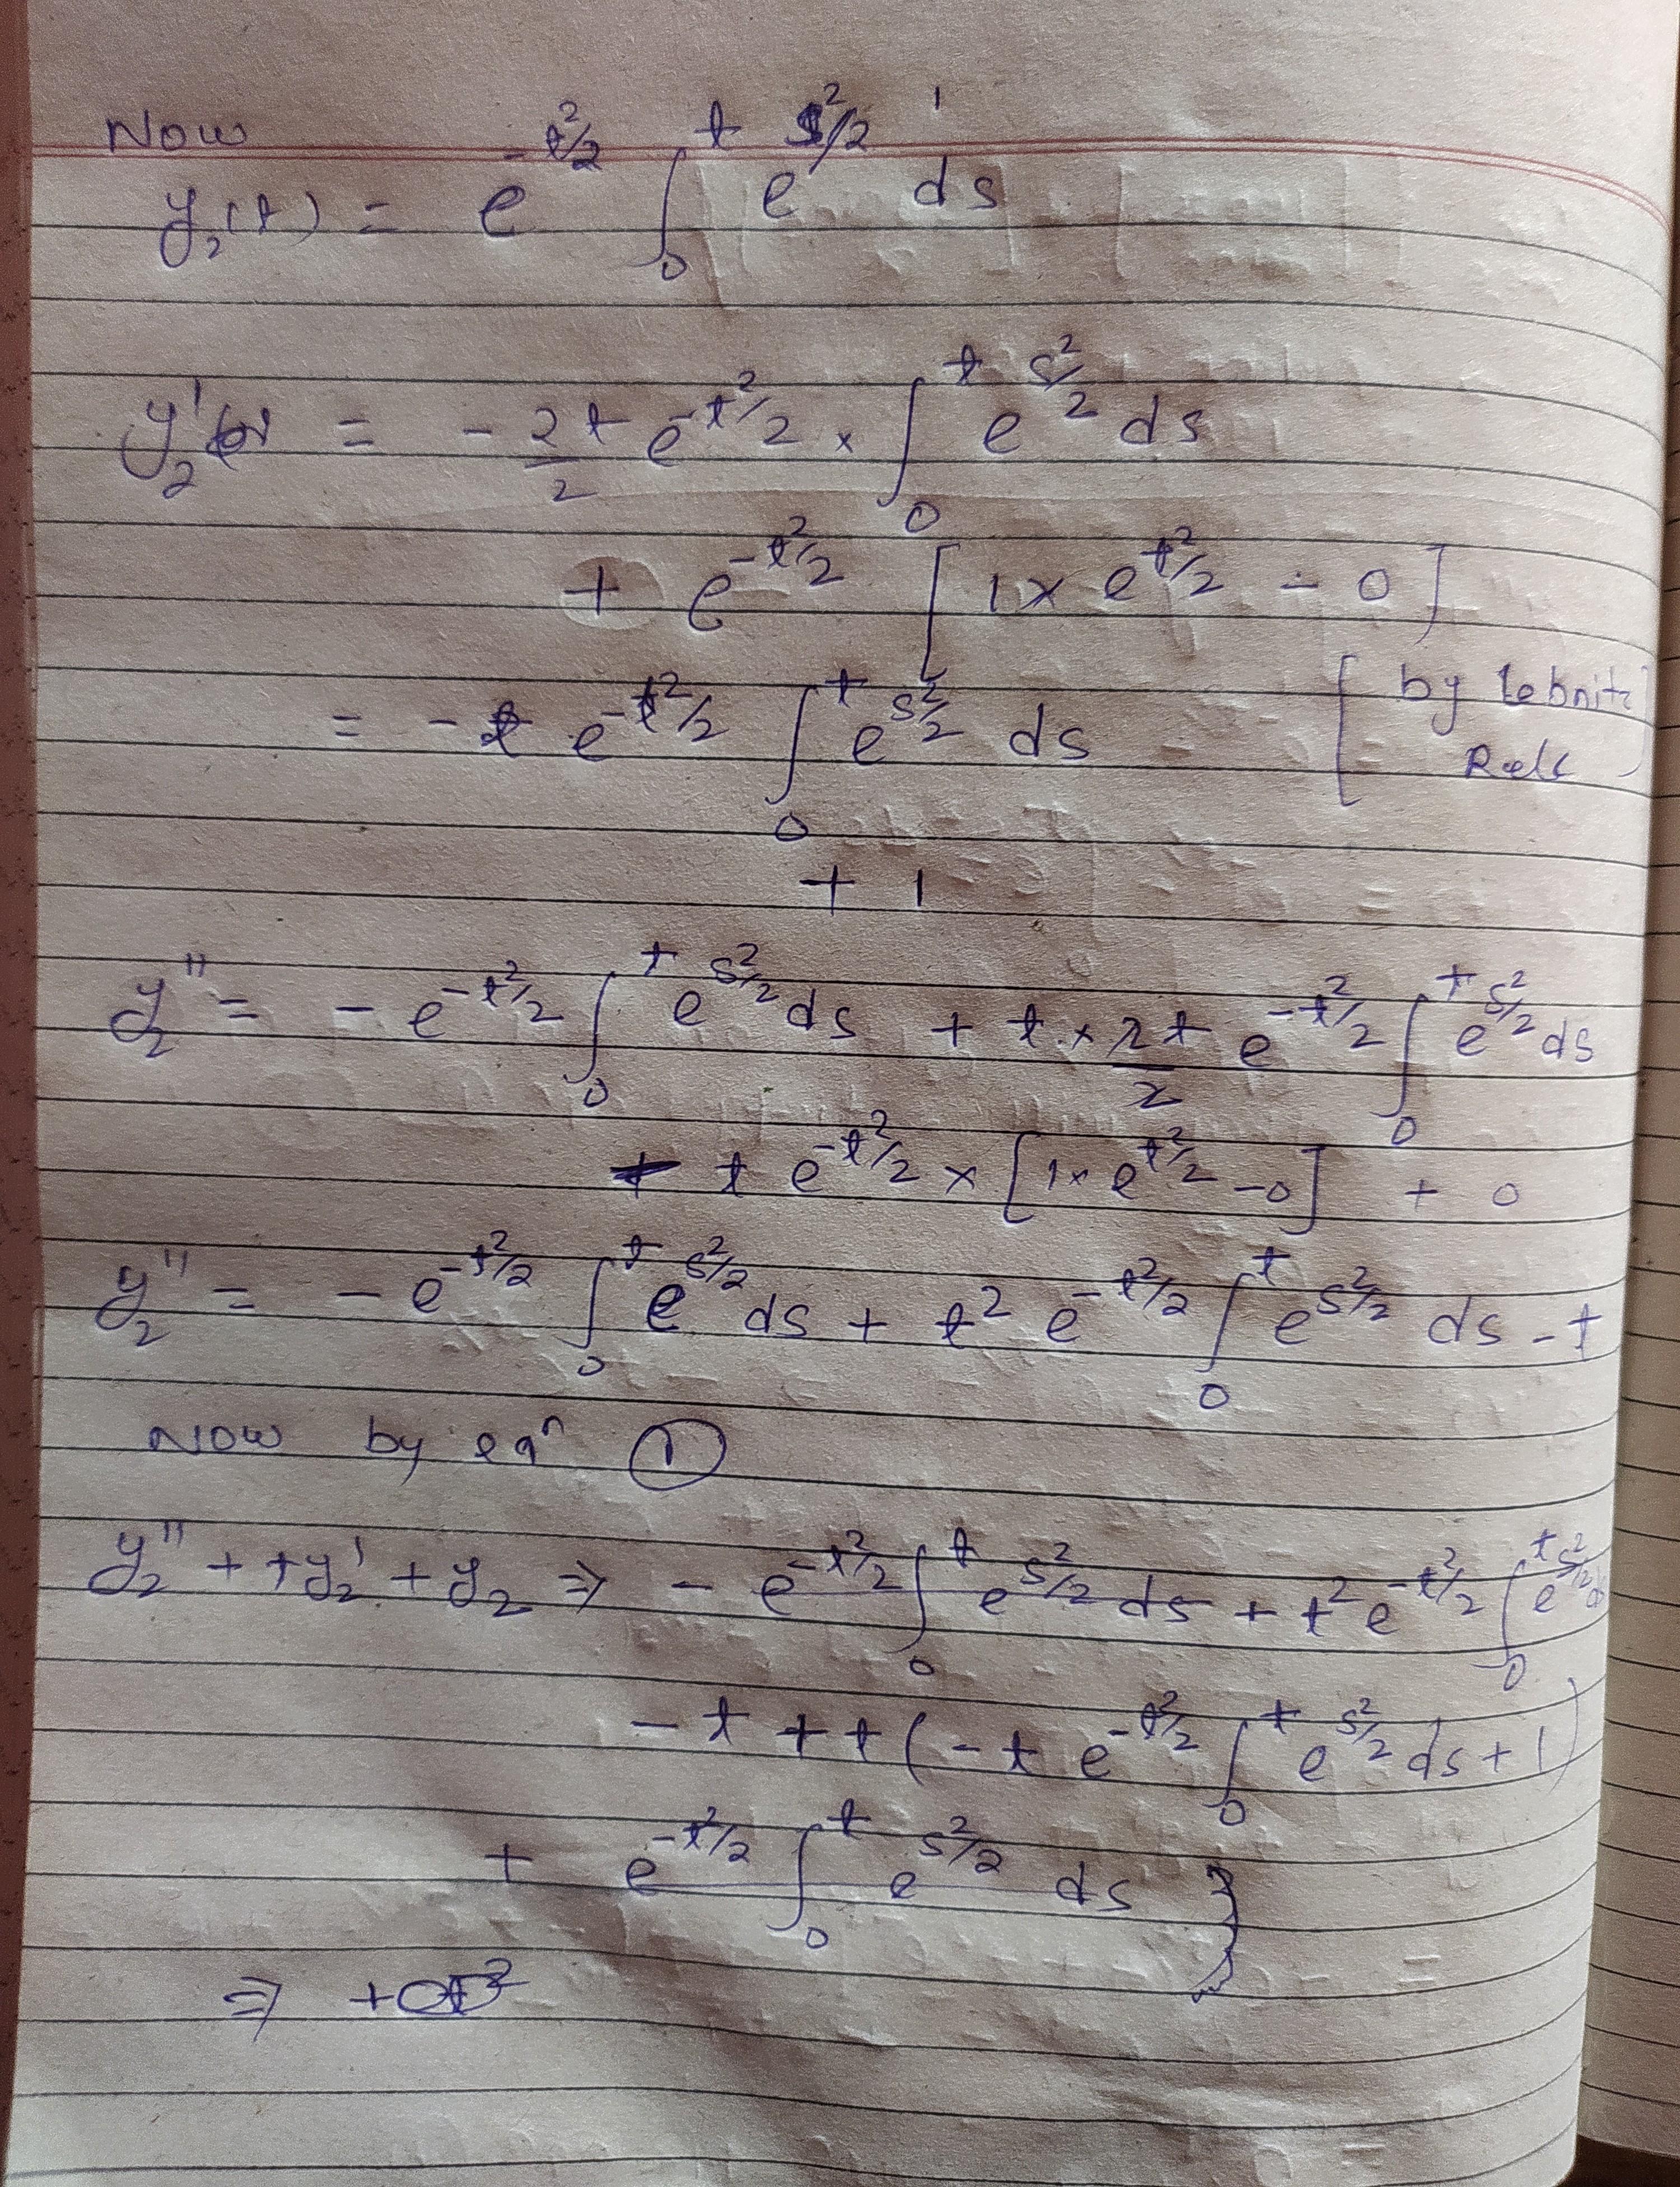 Now
y₂(t) = e^{-t²/2} ∫₀^t e^{s²/2} ds
y₂' = - 2t/2 e^{-t²/2} × ∫₀^t e^{s²/2} ds
+ e^{-t²/2} [1 × e^{t²/2} - 0]
= - t e^{-t²/2} ∫₀^t e^{s²/2} ds [by Lebnitz
Rule]
+ 1
y₂'' = - e^{-t²/2} ∫₀^t e^{s²/2} ds + t × 2t/2 e^{-t²/2} ∫₀^t e^{s²/2} ds
- t e^{-t²/2} × [1 × e^{t²/2} - 0] + 0
y₂'' = - e^{-t²/2} ∫₀^t e^{s²/2} ds + t² e^{-t²/2} ∫₀^t e^{s²/2} ds - t
Now by eqⁿ ①
y₂'' + ty₂' + y₂ ⇒ - e^{-t²/2} ∫₀^t e^{s²/2} ds + t² e^{-t²/2} ∫₀^t e^{s²/2} ds
- t + t(-t e^{-t²/2} ∫₀^t e^{s²/2} ds + 1)
+ e^{-t²/2} ∫₀^t e^{s²/2} ds }
⇒